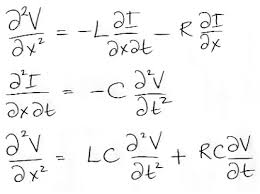 ∂²V/∂x² = -L ∂I/∂x∂t - R ∂I/∂x
∂²I/∂x∂t = -C ∂²V/∂t²
∂²V/∂x² = LC ∂²V/∂t² + RC ∂V/∂t